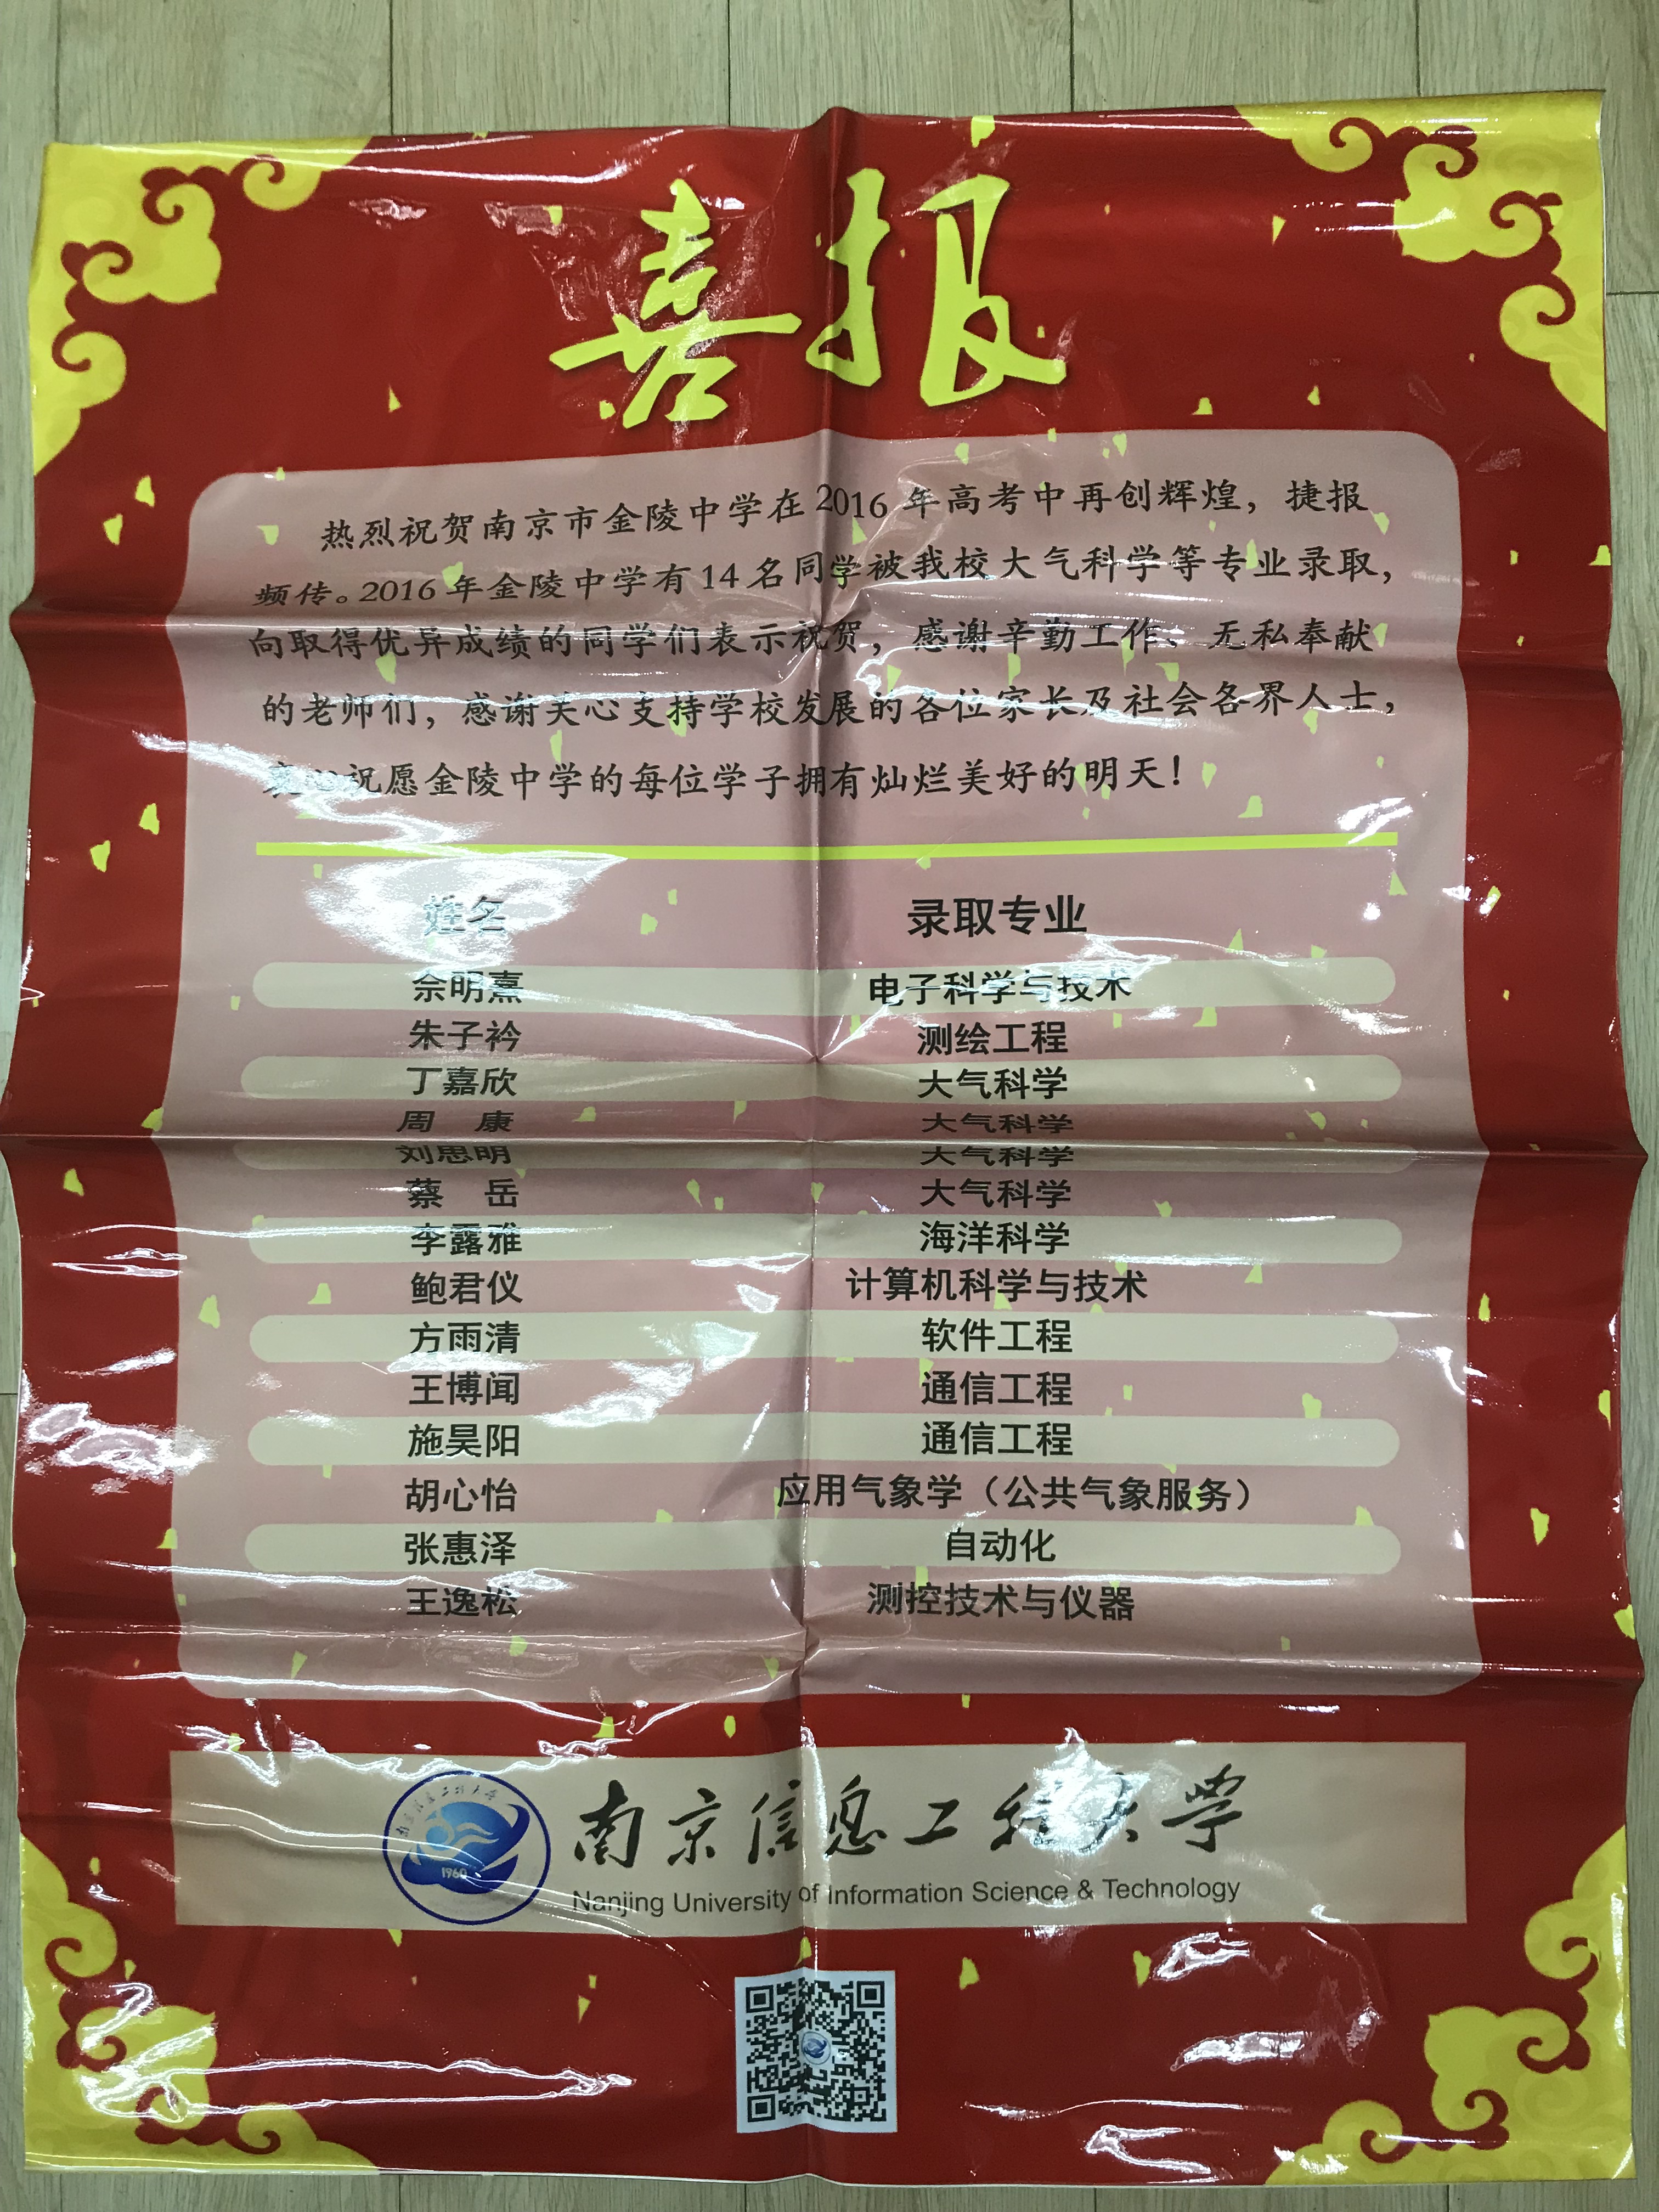 喜报
热烈祝贺南京市金陵中学在2016年高考中再创辉煌，捷报
频传。2016年金陵中学有14名同学被我校大气科学等专业录取，
向取得优异成绩的同学们表示祝贺，感谢辛勤工作、无私奉献
的老师们，感谢关心支持学校发展的各位家长及社会各界人士，
衷心祝愿金陵中学的每位学子拥有灿烂美好的明天！
姓名 录取专业
佘明熹 电子科学与技术
朱子衿 测绘工程
丁嘉欣 大气科学
周 康 大气科学
刘思明 大气科学
蔡 岳 大气科学
李露雅 海洋科学
鲍君仪 计算机科学与技术
方雨清 软件工程
王博闻 通信工程
施昊阳 通信工程
胡心怡 应用气象学（公共气象服务）
张惠泽 自动化
王逸松 测控技术与仪器
南京信息工程大学
1960
南京信息工程大学
Nanjing University of Information Science & Technology